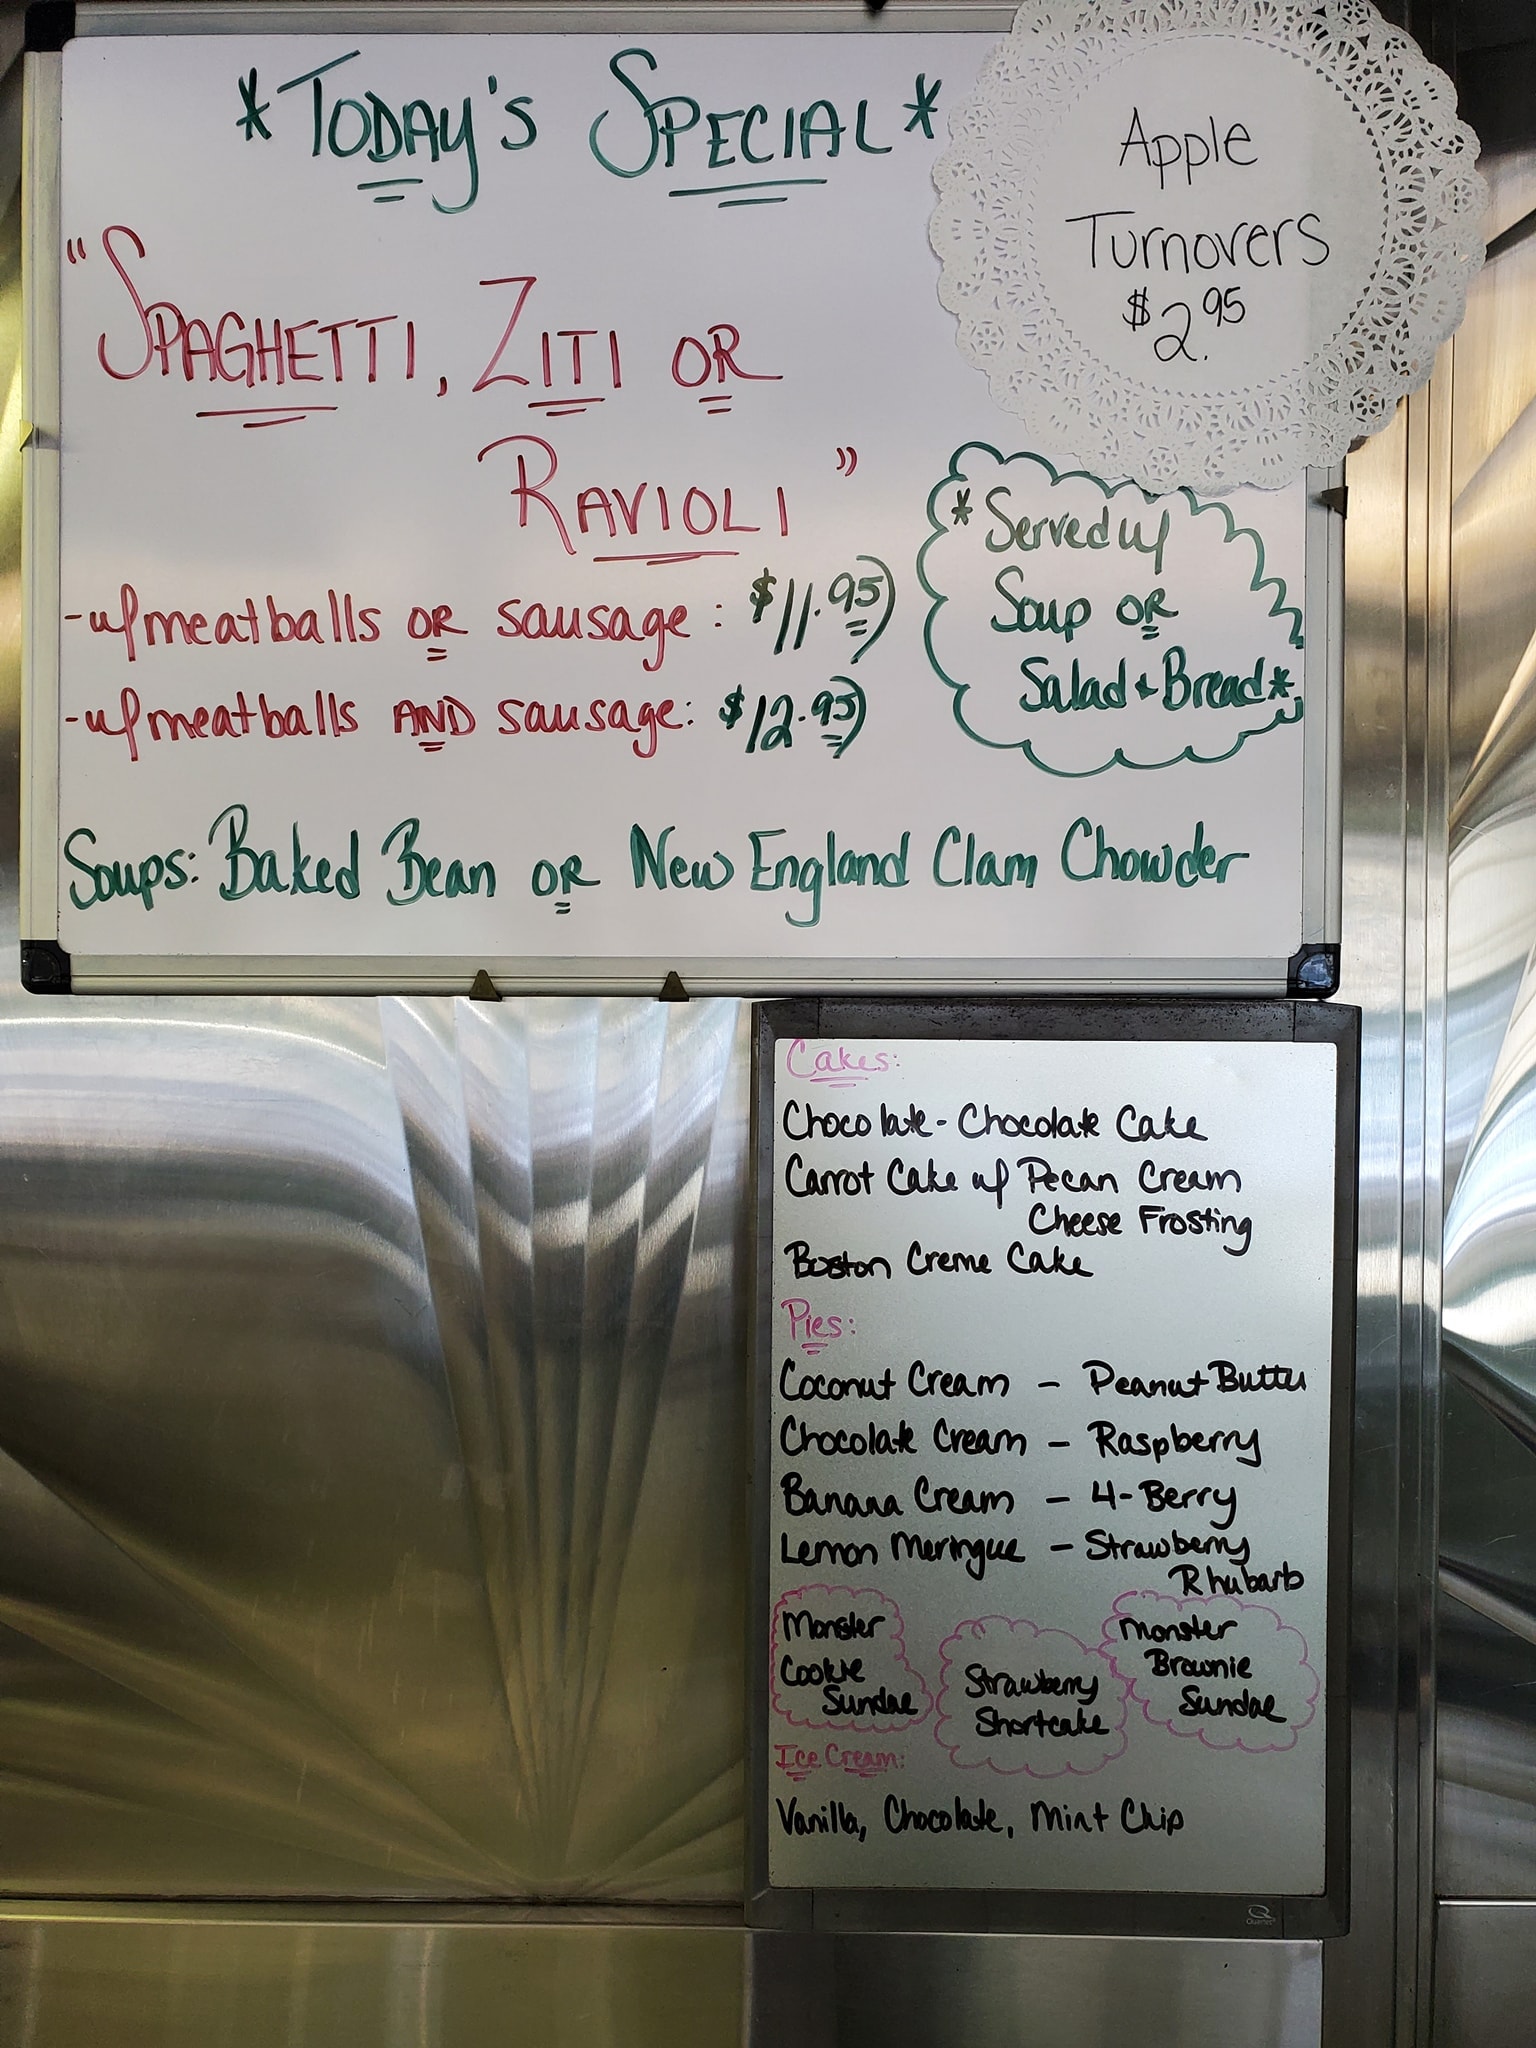 *Today's Special*
"Spaghetti, Ziti or
Ravioli"
-w/meatballs OR sausage: $11.95)
-w/meatballs AND sausage: $12.95)
*Served w/
Soup OR
Salad + Bread*
Soups: Baked Bean OR New England Clam Chowder
Apple
Turnovers
$2.95
Cakes:
Chocolate-Chocolate Cake
Carrot Cake w/ Pecan Cream
Cheese Frosting
Boston Creme Cake
Pies:
Coconut Cream - Peanut Butter
Chocolate Cream - Raspberry
Banana Cream - 4-Berry
Lemon Meringue - Strawberry
Rhubarb
Monster
Cookie
Sundae
Strawberry
Shortcake
Monster
Brownie
Sundae
Ice Cream:
Vanilla, Chocolate, Mint Chip
Quartet